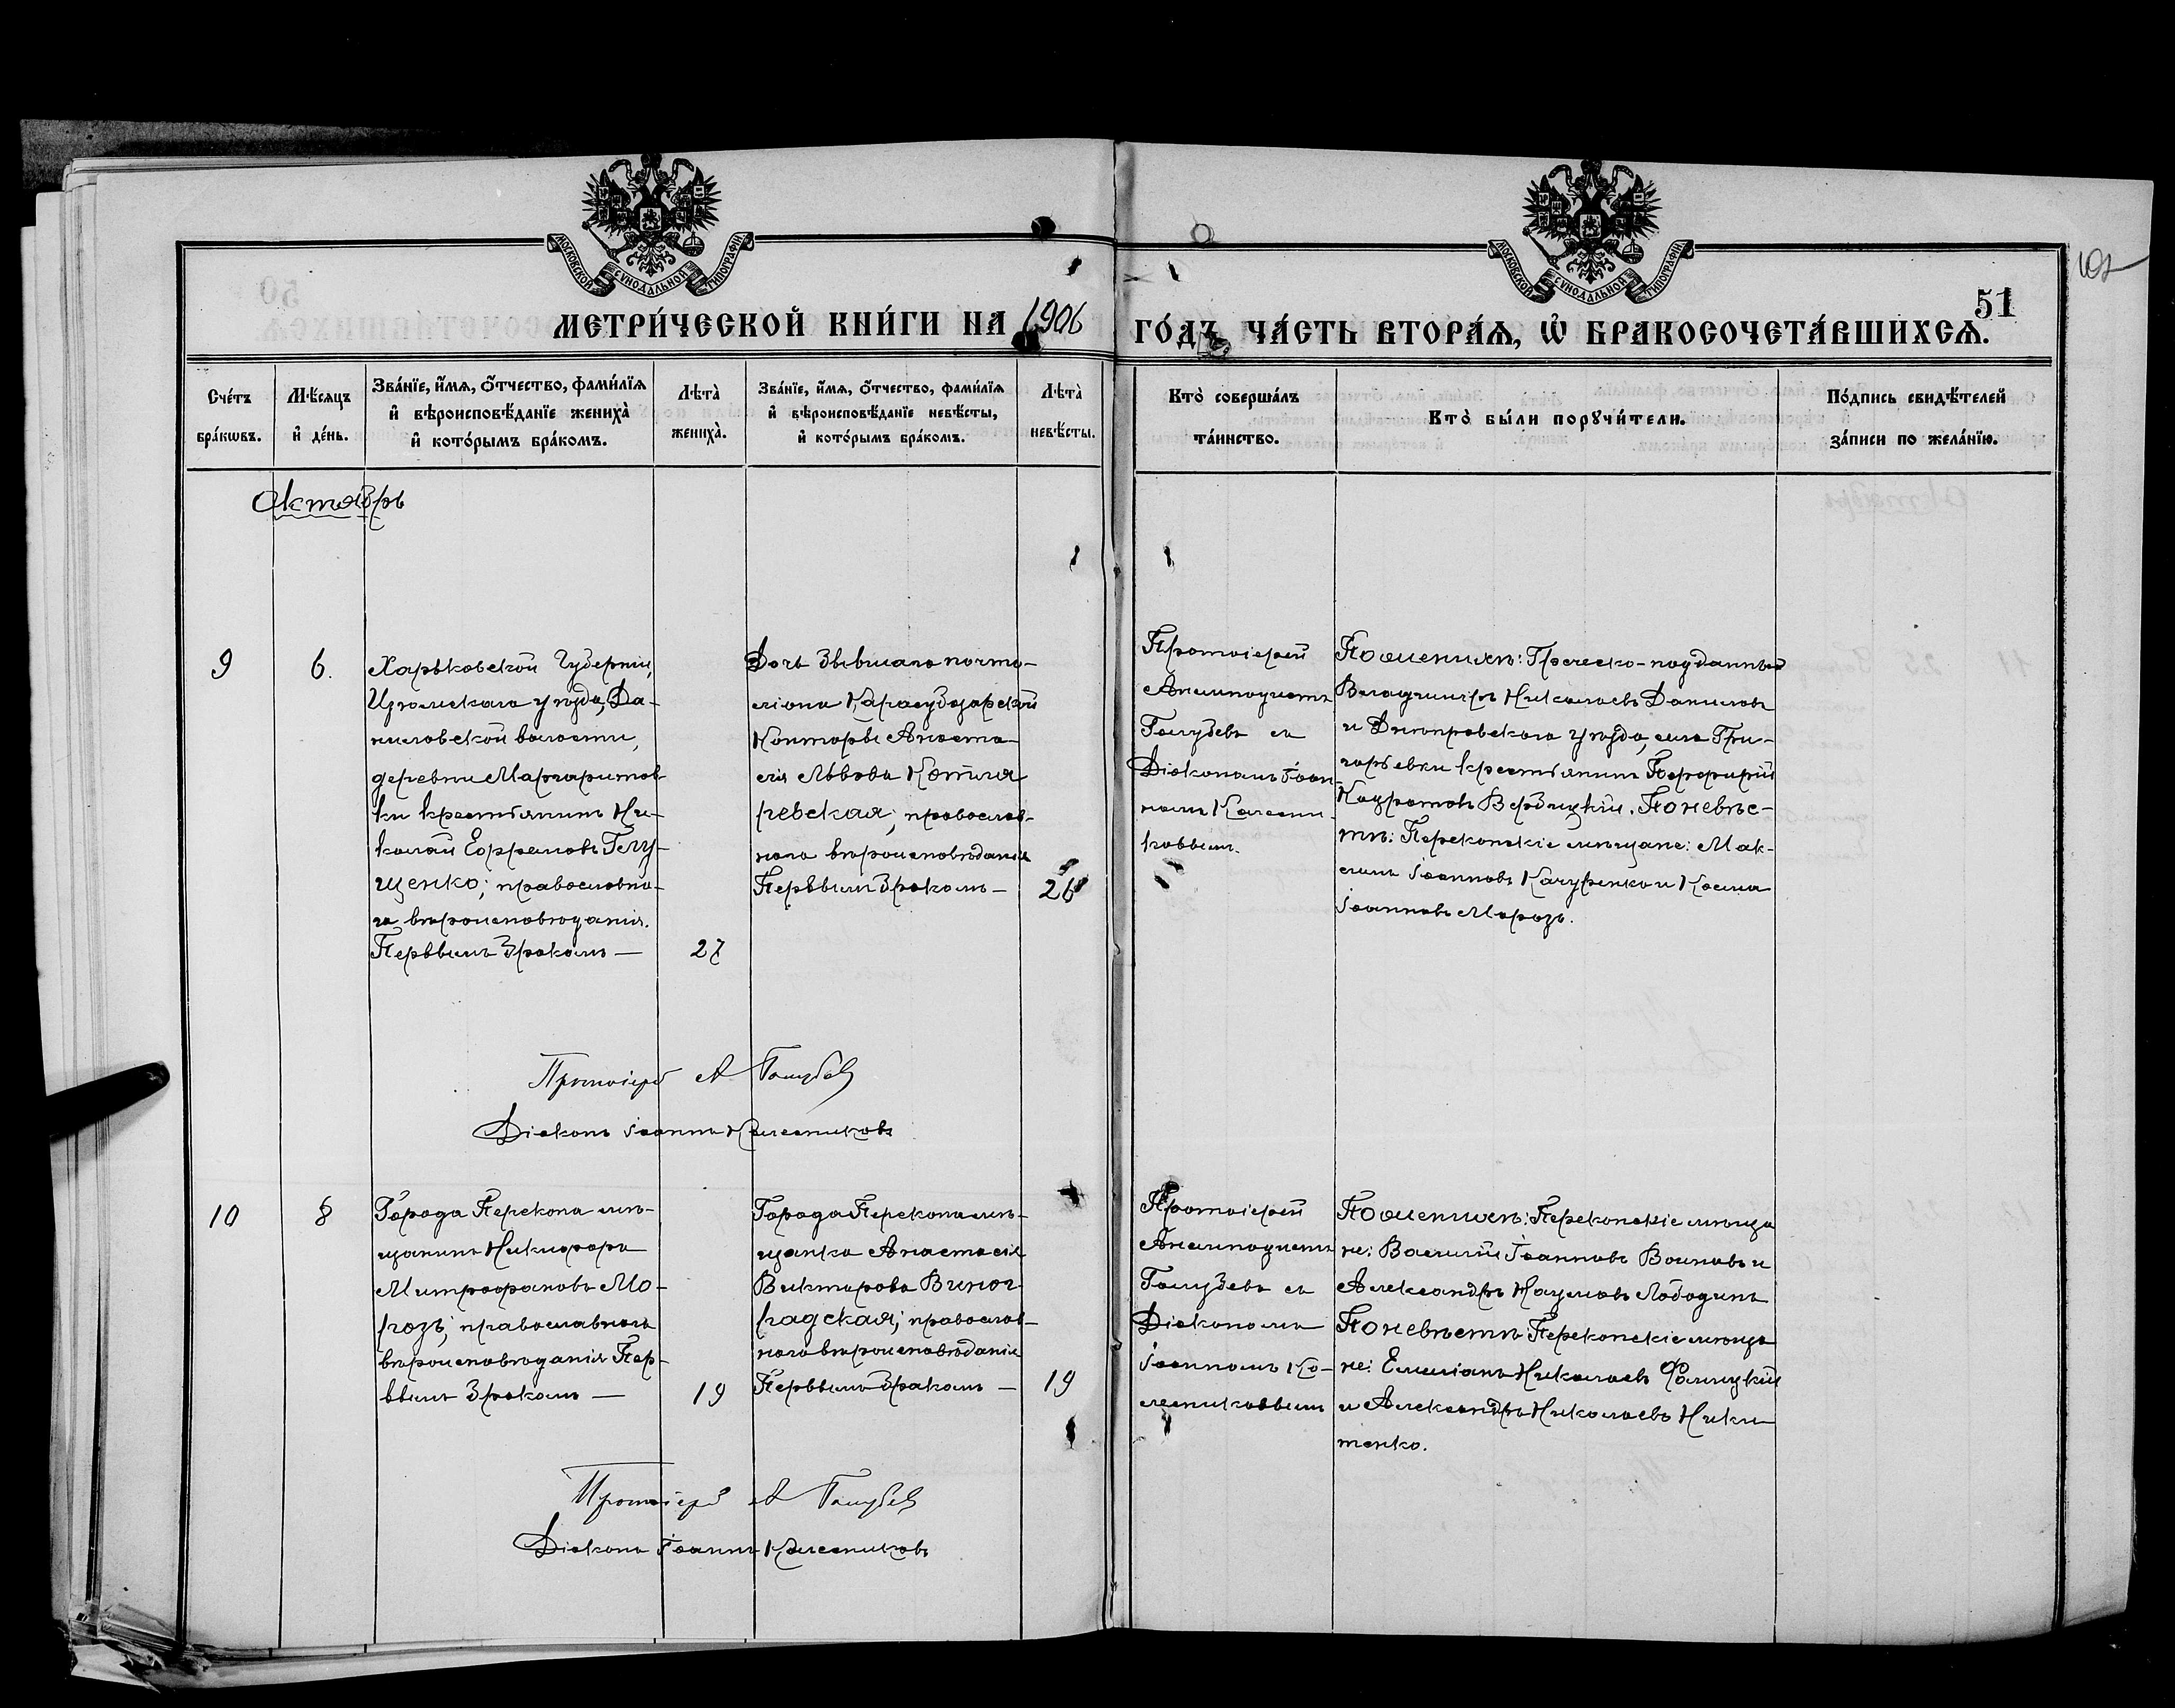 МОСКОВСКОЙ СѴНОДАЛЬНОЙ ТИПОГРАФІИ
МОСКОВСКОЙ СѴНОДАЛЬНОЙ ТИПОГРАФІИ
51
МЕТРИ́ЧЕСКОЙ КНИ́ГИ НА 1906 ГО́ДЪ ЧА́СТЬ ВТОРА́Я, Ѡ БРАКОСОЧЕТА́ВШИХСЯ.
Сче́тъ бра́кѡвъ.
Мѣ́сяцъ и҆ де́нь.
Зва́нїе, и҆́мѧ, о҆́тчество, фами́лїѧ
и҆ вѣроисповѣ́данїе жениха̀
и҆ кото́рымъ бра́комъ.
Лѣта̀ жениха̀.
Зва́нїе, и҆́мѧ, о҆́тчество, фами́лїѧ
и҆ вѣроисповѣ́данїе невѣ́сты,
и҆ кото́рымъ бра́комъ.
Лѣта̀ невѣ́сты.
Кто̀ соверша́лъ та́инство.
Кто̀ бы́ли порꙋчи́тели.
По́дпись свидѣ́телей за́писи по жела́нїю.
Октябрь
9
6.
Харьковской Губерніи,
Изюмскаго уѣзда, Да-
ниловской волости,
деревни Маргаритов
ки крестьянинъ Ни-
колай Ефремовъ Гелу-
щенко; православна-
го вѣроисповѣданія.
Первымъ бракомъ —
27
Дочь бывшаго почта-
ліона Карасубазарской
Конторы Анаста-
сія Львова Котля
ревская; православ-
наго вѣроисповѣданія
Первымъ бракомъ —
26
Протоіерей
Анемподистъ
Голубевъ съ
Діакономъ Іоан-
номъ Колесни-
ковымъ.
По женихѣ: Греческо-подданный
Владиміръ Николаевъ Даниловъ
и Днѣпровскаго уѣзда, села Гри-
горьевки крестьянинъ Порфирій
Кодратовъ Вербицкій. По невѣс-
тѣ: Перекопскіе мѣщане: Мак-
симъ Іоанновъ Качуренко и Косма
Іоанновъ Морозъ.
Протоіерей А Голубевъ
Діаконъ Іоаннъ Колесниковъ
10
8
Города Перекопа мѣ-
щанинъ Никифоръ
Митрофановъ Мо-
розъ; православнаго
вѣроисповѣданія Пер-
вымъ бракомъ —
19
Города Перекопа мѣ-
щанка Анастасія
Викторова Виног-
радская; православ-
наго вѣроисповѣданія
Первымъ бракомъ —
19
Протоіерей
Анемподистъ
Голубевъ съ
Діакономъ
Іоанномъ Ко-
лесниковымъ
По женихѣ: Перекопскіе мѣща
не: Василій Іоанновъ Воиновъ и
Александръ Наумовъ Лободинъ
По невѣстѣ: Перекопскіе мѣща
не: Емиліанъ Николаевъ Фалицкій
и Александръ Николаевъ Ники
тенко.
Протоіерей А Голубевъ
Діаконъ Іоаннъ Колесниковъ